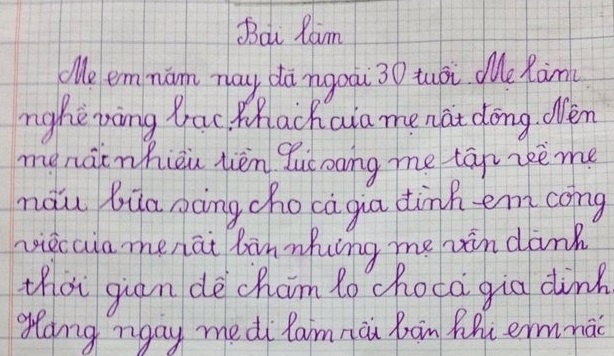 Bài làm
Mẹ em năm nay đã ngoài 30 tuổi. Mẹ làm
nghề vàng bạc. Khách của mẹ rất đông. Nên
mẹ rất nhiều tiền. Lúc sáng mẹ tập về mẹ
nấu bữa sáng cho cả gia đình em công
việc của mẹ rất bận nhưng mẹ vẫn dành
thời gian để chăm lo cho cả gia đình.
Hàng ngày mẹ đi làm rất bận khi em mắc